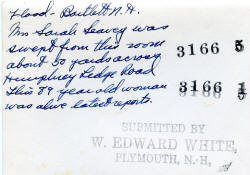 Flood - Bartlett N.H.
Mrs Sarah Seavey was
swept from this room
about 50 yards across
Humphrey Ledge Road
This 89 year old woman
was alive latest reports.
3166 5
3166 5
SUBMITTED BY
W. EDWARD WHITE,
PLYMOUTH, N.H.